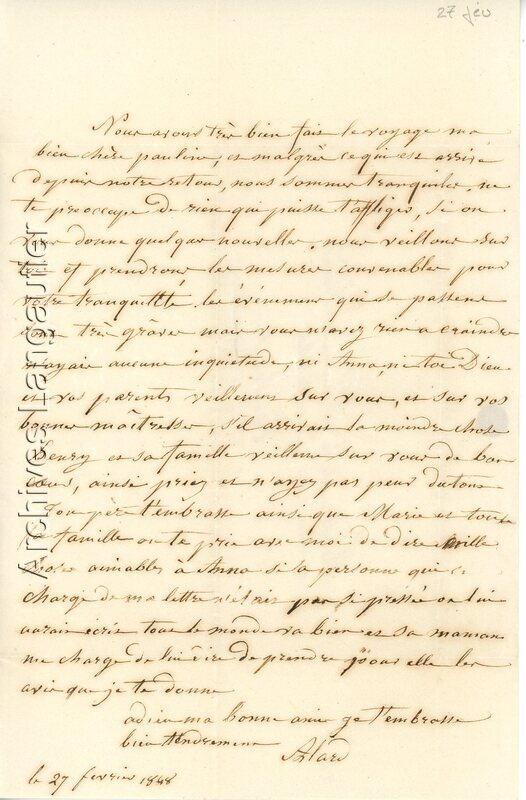 27 fév
Nous avons très bien fait le voyage ma
bien chère pauline, et malgrès ce qui est arrivé
depuis notre retour, nous sommes tranquiles, ne
te preoccupe de rien qui puisse t'affliger, si on
vous donne quelques nouvelles. nous veillons sur
et prendrons les mesures convenables pour
votre tranquillté. les événemens qui se passent
sont très grâves mais vous n'avez rien a craindre
n'ayais aucune inquietude, ni Anna, ni toi Dieu
et vos parents veilleront sur vous, et sur vos
bonnes maîtresses, s'il arrivait la moindre chose
Henry et sa famille veillent sur vous de bon
cœur, ainsi priez et n'ayez pas peur du tout
Ton père t'embrasse ainsi que Marie et toute
la famille on te prie avec moi de dire mille
choses aimables à Anna si la personne qui se
charge de ma lettre n'était pas si pressée on lui
aurait écrit tout le monde va bien et sa maman
me charge de lui dire de prendre pour elle les
avis que je te donne
adieu ma bonne amie je t'embrasse
bien tendrement
le 27 fevrier 1848
Archives Langautier